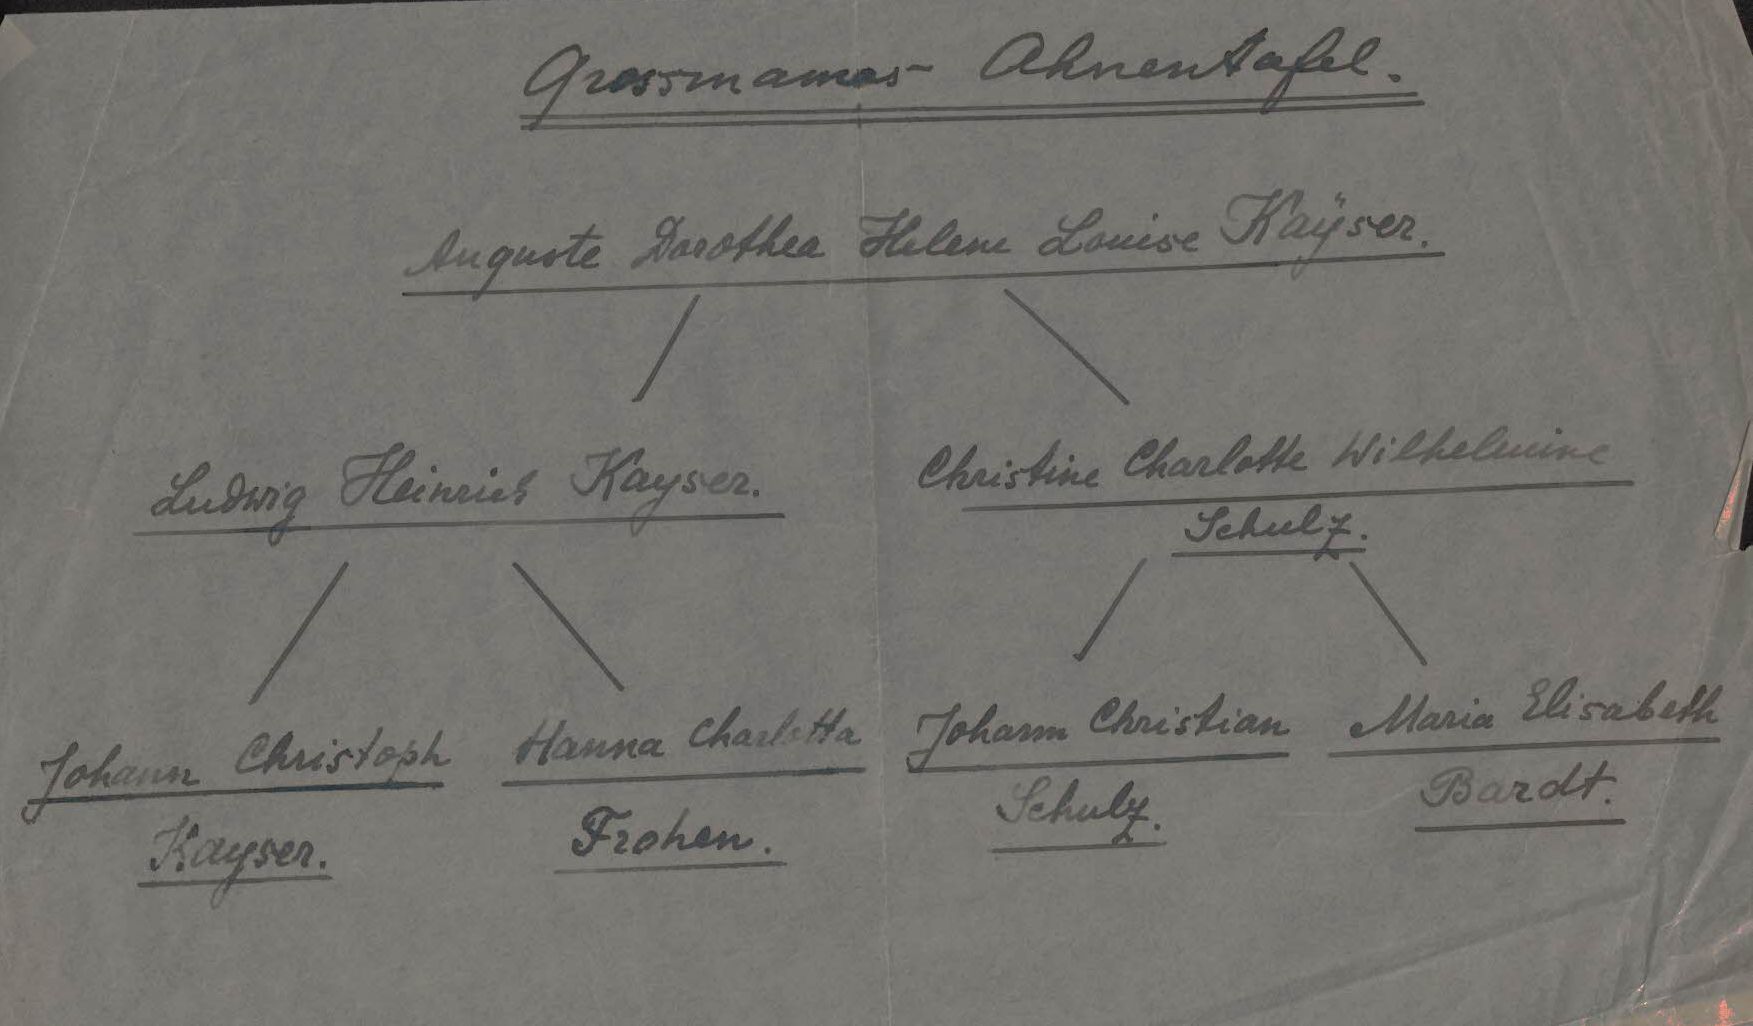 Grossmamas Ahnentafel.
Auguste Dorothea Helene Louise Kaÿser.
Ludwig Heinrich Kayser.
Christine Charlotte Wilhelmine
Schulz.
Johann Christoph
Kayser.
Hanna Charlotta
Frohen.
Johann Christian
Schulz.
Maria Elisabeth
Bardt.